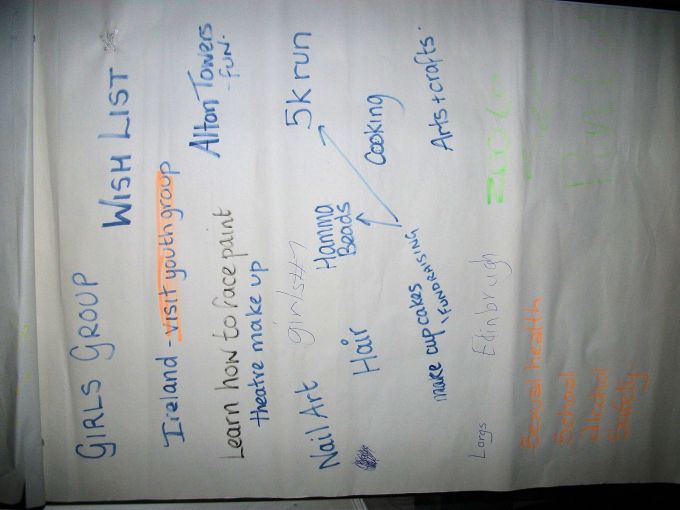 GIRLS GROUP WISH LIST
Ireland - visit youth group
Alton Towers
- FUN.
Learn how to face paint
theatre make up
girls#1
Nail Art
Hamma
Beads
5k run
Hair
Cooking
make cupcakes
FUNDRAISING
Arts + crafts.
Largs
Edinbrugh
Sexual health
School
alcohol
Safety